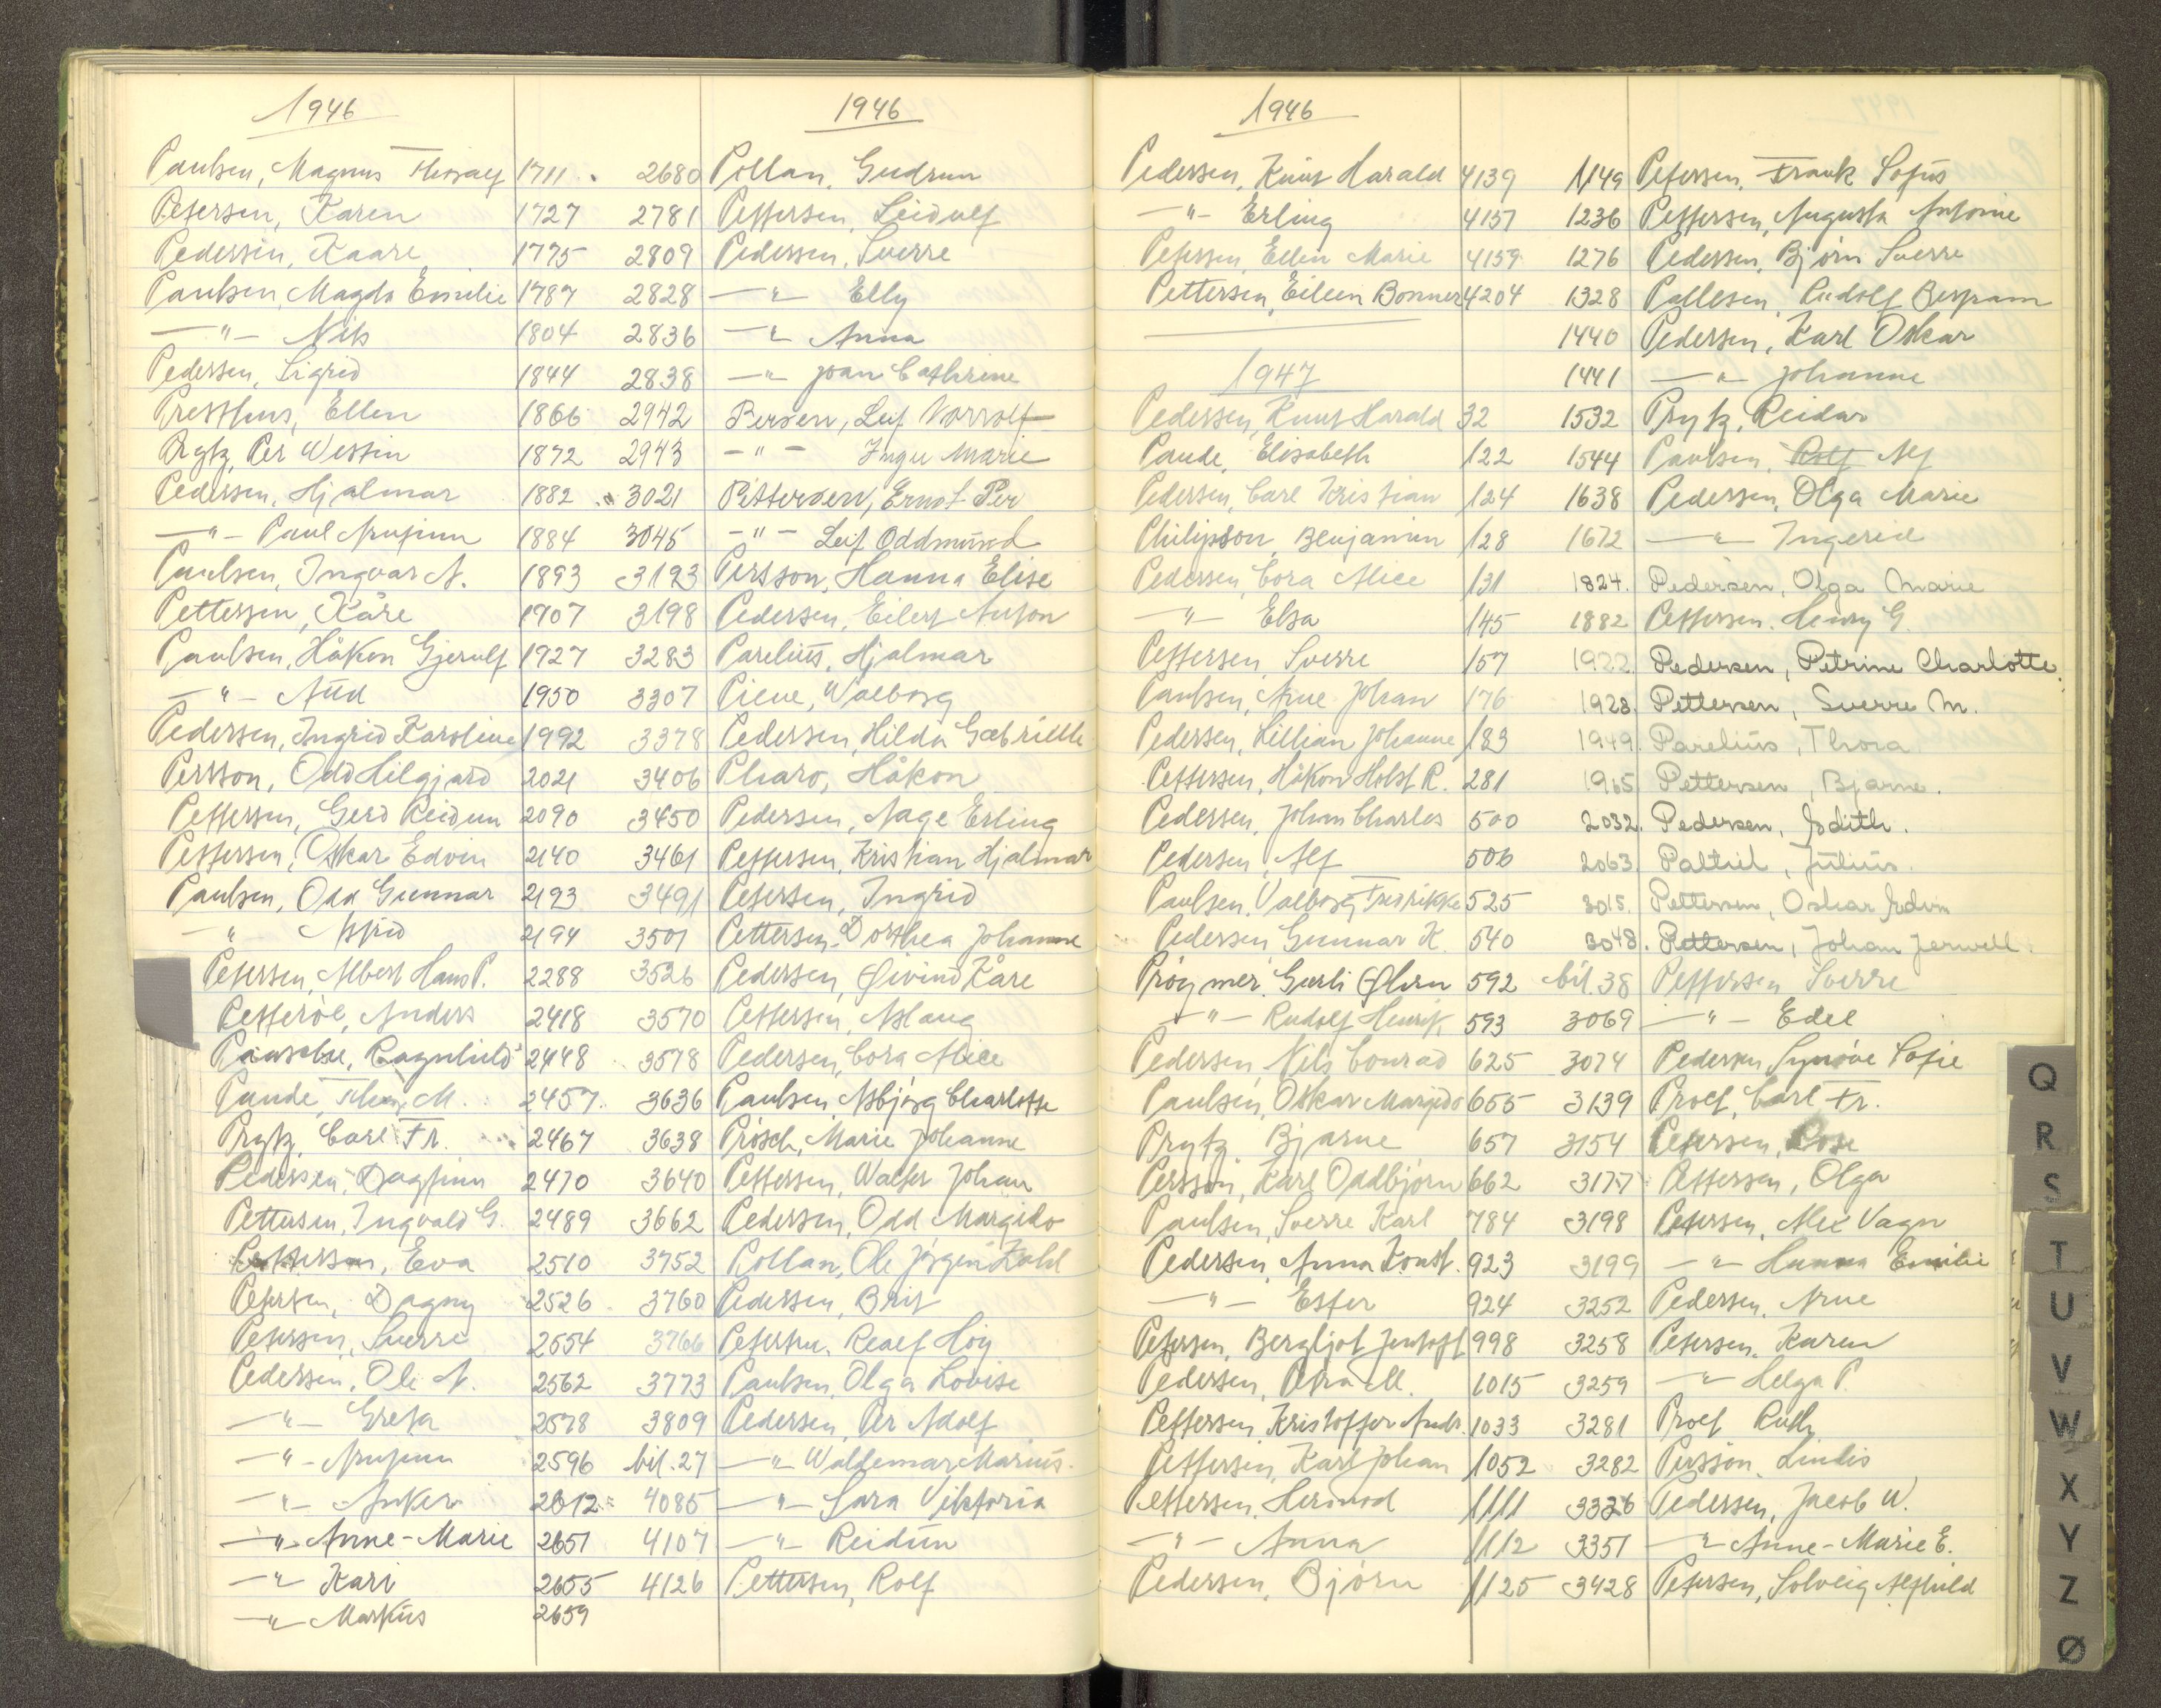 1946
Paulsen, Magnus Thoralf 1711
Petersen, Karen 1727
Pedersen, Kaare 1775
Paulsen, Magda Emilie 1787
—"— Nils 1804
Pedersen, Sigrid 1844
Presthus, Ellen 1866
Prytz, Per Westin 1872
Pedersen, Hjalmar 1882
—"— Paul Arnfinn 1884
Paulsen, Ingvar A. 1893
Pettersen, Kåre 1907
Paulsen, Håkon Gjerulf 1927
—"— Aud 1950
Pedersen, Ingrid Karoline 1992
Persson, Odd Hilgjard 2021
Pettersen, Gerd Reidun 2090
Pettersen, Oskar Edvin 2140
Paulsen, Odd Gunnar 2193
—"— Astrid 2194
Petersen, Albert Hans P. 2288
Petterøe, Anders 2418
Ragnhild 2448
Paude, M. 2457
Prytz, Carl Fr. 2467
Pedersen, Dagfinn 2470
Pettersen, Ingvald G. 2489
Eva 2510
Petersen, Dagny 2526
Petersen, Sverre 2554
Pedersen, Ole A. 2562
—"— Greta 2578
—"— Arnfinn 2596
—"— Anker 2612
—"— Anne-Marie 2651
—"— Kari 2655
—"— Markus 2659
1946
2680 Pollan, Gudrun
2781 Pettersen, Leidulf
2809 Pedersen, Sverre
2828 —"— Elly
2836 —"— Anna
2838 —"— Joan Cathrine
2942 Persen, Leif Norrolf
2943 —"— Inga Marie
3021 Pettersen, Ernst Per
3045 —"— Leif Oddmund
3193 Persson, Hanna Elise
3198 Pedersen, Eilert Anton
3283 Parelius, Hjalmar
3307 Piene, Walborg
3378 Pedersen, Hilda Gabrielle
3406 Pharo, Håkon
3450 Pedersen, Aage Erling
3461 Pettersen, Kristian Hjalmar
3491 Petersen, Ingrid
3501 Pettersen, Dorthea Johanne
3526 Pedersen, Øivind Kåre
3570 Pettersen, Aslaug
3578 Pedersen, Cora Alice
3636 Paulsen, Asbjörg Charlotte
3638 Prösch, Marie Johanne
3640 Pettersen, Walter Johan
3662 Pedersen, Odd Margido
3752 Pollan, Ole Jörgen
3760 Pedersen, Brit
3766 Petersen, Realf Höy
3773 Paulsen, Olga Lovise
3809 Pedersen, Per Adolf
bil. 27 —"— Waldemar Marius
4085 —"— Sara Viktoria
4107 —"— Reidun
4126 Pettersen, Rolf
1946
Pedersen, Knut Harald 4139
—"— Erling 4157
Petersen, Ellen Marie 4159
Pettersen, Eileen Bonner 4204
1947
Pedersen, Knut Harald 32
Paude, Elisabeth 122
Pedersen, Carl Kristian 124
Philipson, Benjamin 128
Pedersen, Cora Alice 131
—"— Elsa 145
Pettersen, Sverre 157
Paulsen, Arne Johan 176
Pedersen, Lillian Johanne 183
Pettersen, Håkon Holst R. 281
Pedersen, Johan Charles 500
Pedersen, Alf 506
Paulsen, Valborg Fredrikke 525
Pedersen, Gunnar K. 540
Gurli 592
—"— Rudolf Henrik 593
Pedersen, Nils Conrad 625
Paulsen, Oskar Margido 655
Prytz, Bjarne 657
Persson, Karl Oddbjörn 662
Paulsen, Sverre Karl 784
Pedersen, Anna Konst. 923
—"— Ester 924
Petersen, Bergljot Jentoft 998
Pedersen, M. 1015
Pettersen, Kristoffer Andr. 1033
Pettersen, Karl Johan 1052
Pettersen, Hermod 1111
—"— Anna 1112
Pedersen, Björn 1125
1149 Petersen, Frank Sofus
1236 Pettersen, Augusta Antonie
1276 Pedersen, Björn Sverre
1328 Pallesen, Rudolf Bertram
1440 Pedersen, Karl Oskar
1441 —"— Johanne
1532 Prytz, Reidar
1544 Paulsen, Rolf Alf
1638 Pedersen, Olga Marie
1672 —"— Ingerid
1824. Pedersen, Olga Marie
1882 Pettersen, Henry G.
1922. Pedersen, Petrine Charlotte.
1928. Pettersen, Sverre M.
1949. Parelius, Thora
1965 Pettersen, Bjarne.
2032. Pedersen, Edith.
2063. Paltiel, Julius.
3015. Pettersen, Oskar Edvin
3048. Pettersen, Johan Jerwell.
bil. 38 Pettersen Sverre
3069 —"— Edel
3074 Pedersen Synöve Sofie
3139 Proet, Carl Fr.
3154 Petersen, Rose
3177 Pettersen, Olga
3198 Petersen, Alex Vagn
3199 —"— Hanna Emilie
3252 Pedersen, Arne
3258 Petersen, Karen
3259 —"— Helga P.
3281 Proet Ruth
3282 Persson, Lindis
3326 Pedersen, Jacob W.
3351 —"— Anne-Marie E.
3428 Petersen, Solveig Alfhild
Q
R
S
T
U
V
W
X
Y
Z
Ø